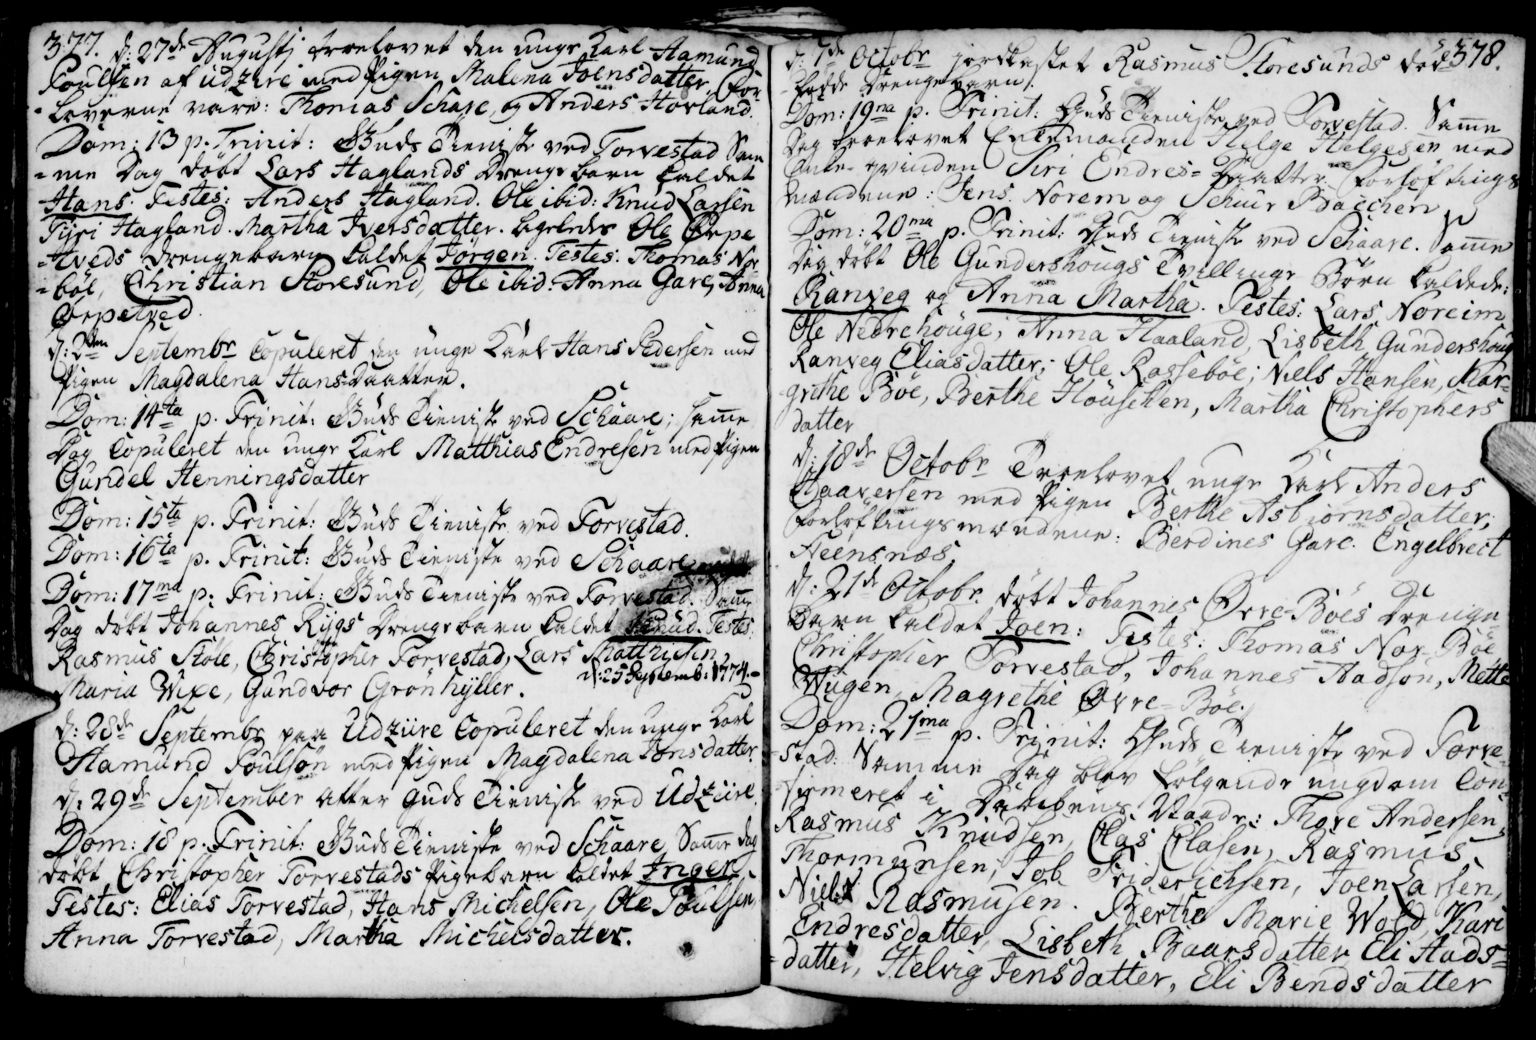 377. d: 27de Augustj troelovet den unge Karl Aamund
Poulsen af udzire med Pigen Malena Joensdatter, Cor-
-leverne vare: Thomas Schare, og Anders Hovland.
Dom: 13 p. Trinit: Guds Tieniste ved Torvestad Sam
-me Dag døbt Lars Haglands Drengebarn kaldet
Hans. Testes: Anders Hagland. Ole ibid: Knud Larsen
Tyri Hagland. Martha Iversdatter. ligeledes Ole Orpe
-tveds Drengebarn kaldet Jørgen. Testes: Thomas Nor-
-böe, Christian Storesund, Ole ibid: Anna Gare, Anna
Orpetved.
d: 2den Septembr Copuleret den unge Karl Hans Pedersen med
Pigen Magdalena Hans Daatter.
Dom: 14ta p. Trinit: Guds Tieniste ved Schaare; same
Dag Copuleret den unge Karl Matthias Endresen med Pigen
Gundel Henningsdatter
Dom: 15ta p. Trinit: Guds Tieniste ved Torvestad.
Dom: 16ta p. Trinit: Guds Tieniste ved Schaare
Dom: 17ma p. Trinit: Guds Tieniste ved Torvestad. Same
Dag døbt Johannes Rygs Drengebarn kaldet Knud. Testes
Rasmus Stole, Christopher Torvestad, Lars Matthisen
Maria Wixe, Gundvor Grönhyller. d: 25 Septemb: 1774.
d: 28de Septembr paa Udziire Copuleret den unge Karl
Aamund Poulsön med Pigen Magdalena Jonsdatter.
d: 29de September atter Guds Tieniste ved Udziire.
Dom: 18 p. Trinit: Guds Tieniste ved Schaare, Same dag
døbt Christopher Torvestads Pigebarn kaldet Inger
Testes: Elias Torvestad, Hans Michelsen, Ole Poulsen,
Anna Torvestad, Martha Michelsdatter.
d: 7de Octobr jordkastet Rasmus Storesunds død 378.
-fødde Drengebarn.
Dom: 19na p. Trinit: Guds Tieniste ved Torvestad. Same
Dag troelovet Enkemanden Helge Helgesen med
Enke-qvinden Siri Endres-Datter. Forlöftnings
mændene: Jens Norem og Schuir Bacchen
Dom: 20ma p. Trinit: Guds Tieniste ved Schaare. Same
Dag døbt Ole Gundershougs Tvillinge Börn kaldede:
Ranveg og Anna Martha. Testes: Lars Noreim
Ole Nedrehouge, Anna Haaland, Lisbeth Gundershoug
Ranveg Eliasdatter; Ole Rasseböe; Niels Hansen, Mar-
grethe Böe, Berthe Houschen, Martha Christophers
datter
d: 18de Octobr Troelovet unge Karl Anders
Haaversen med Pigen Berthe Asbiornsdatter;
Forlöftningsmændene: Berdines Gare. Engelbrect
Steensnæs
d: 21de Octobr døbt Johannes Øvre-Böes Drenge
Barn kaldet Joen: Testes: Thomas Nor-Böe
Christopher Torvestad, Johannes Aadsön, Mette
Wiigen, Magrethe Øvre-Böe.
Dom: 21ma p. Trinit: Guds Tieniste ved Torve-
-stad. Samme Dag blev følgende ungdom Con-
-firmeret i Daabens Naade: Thore Andersen,
Rasmus Knudsen, Clas Clasen, Rasmus
Thormunsen, Job Friderichsen, Joen Larsen,
Niels Rasmusen. Berthe Marie Wold, Kari
Endresdatter, Lisbeth Baarsdatter Eli Aads-
-datter, Helvig Jensdatter, Eli Bendsdatter